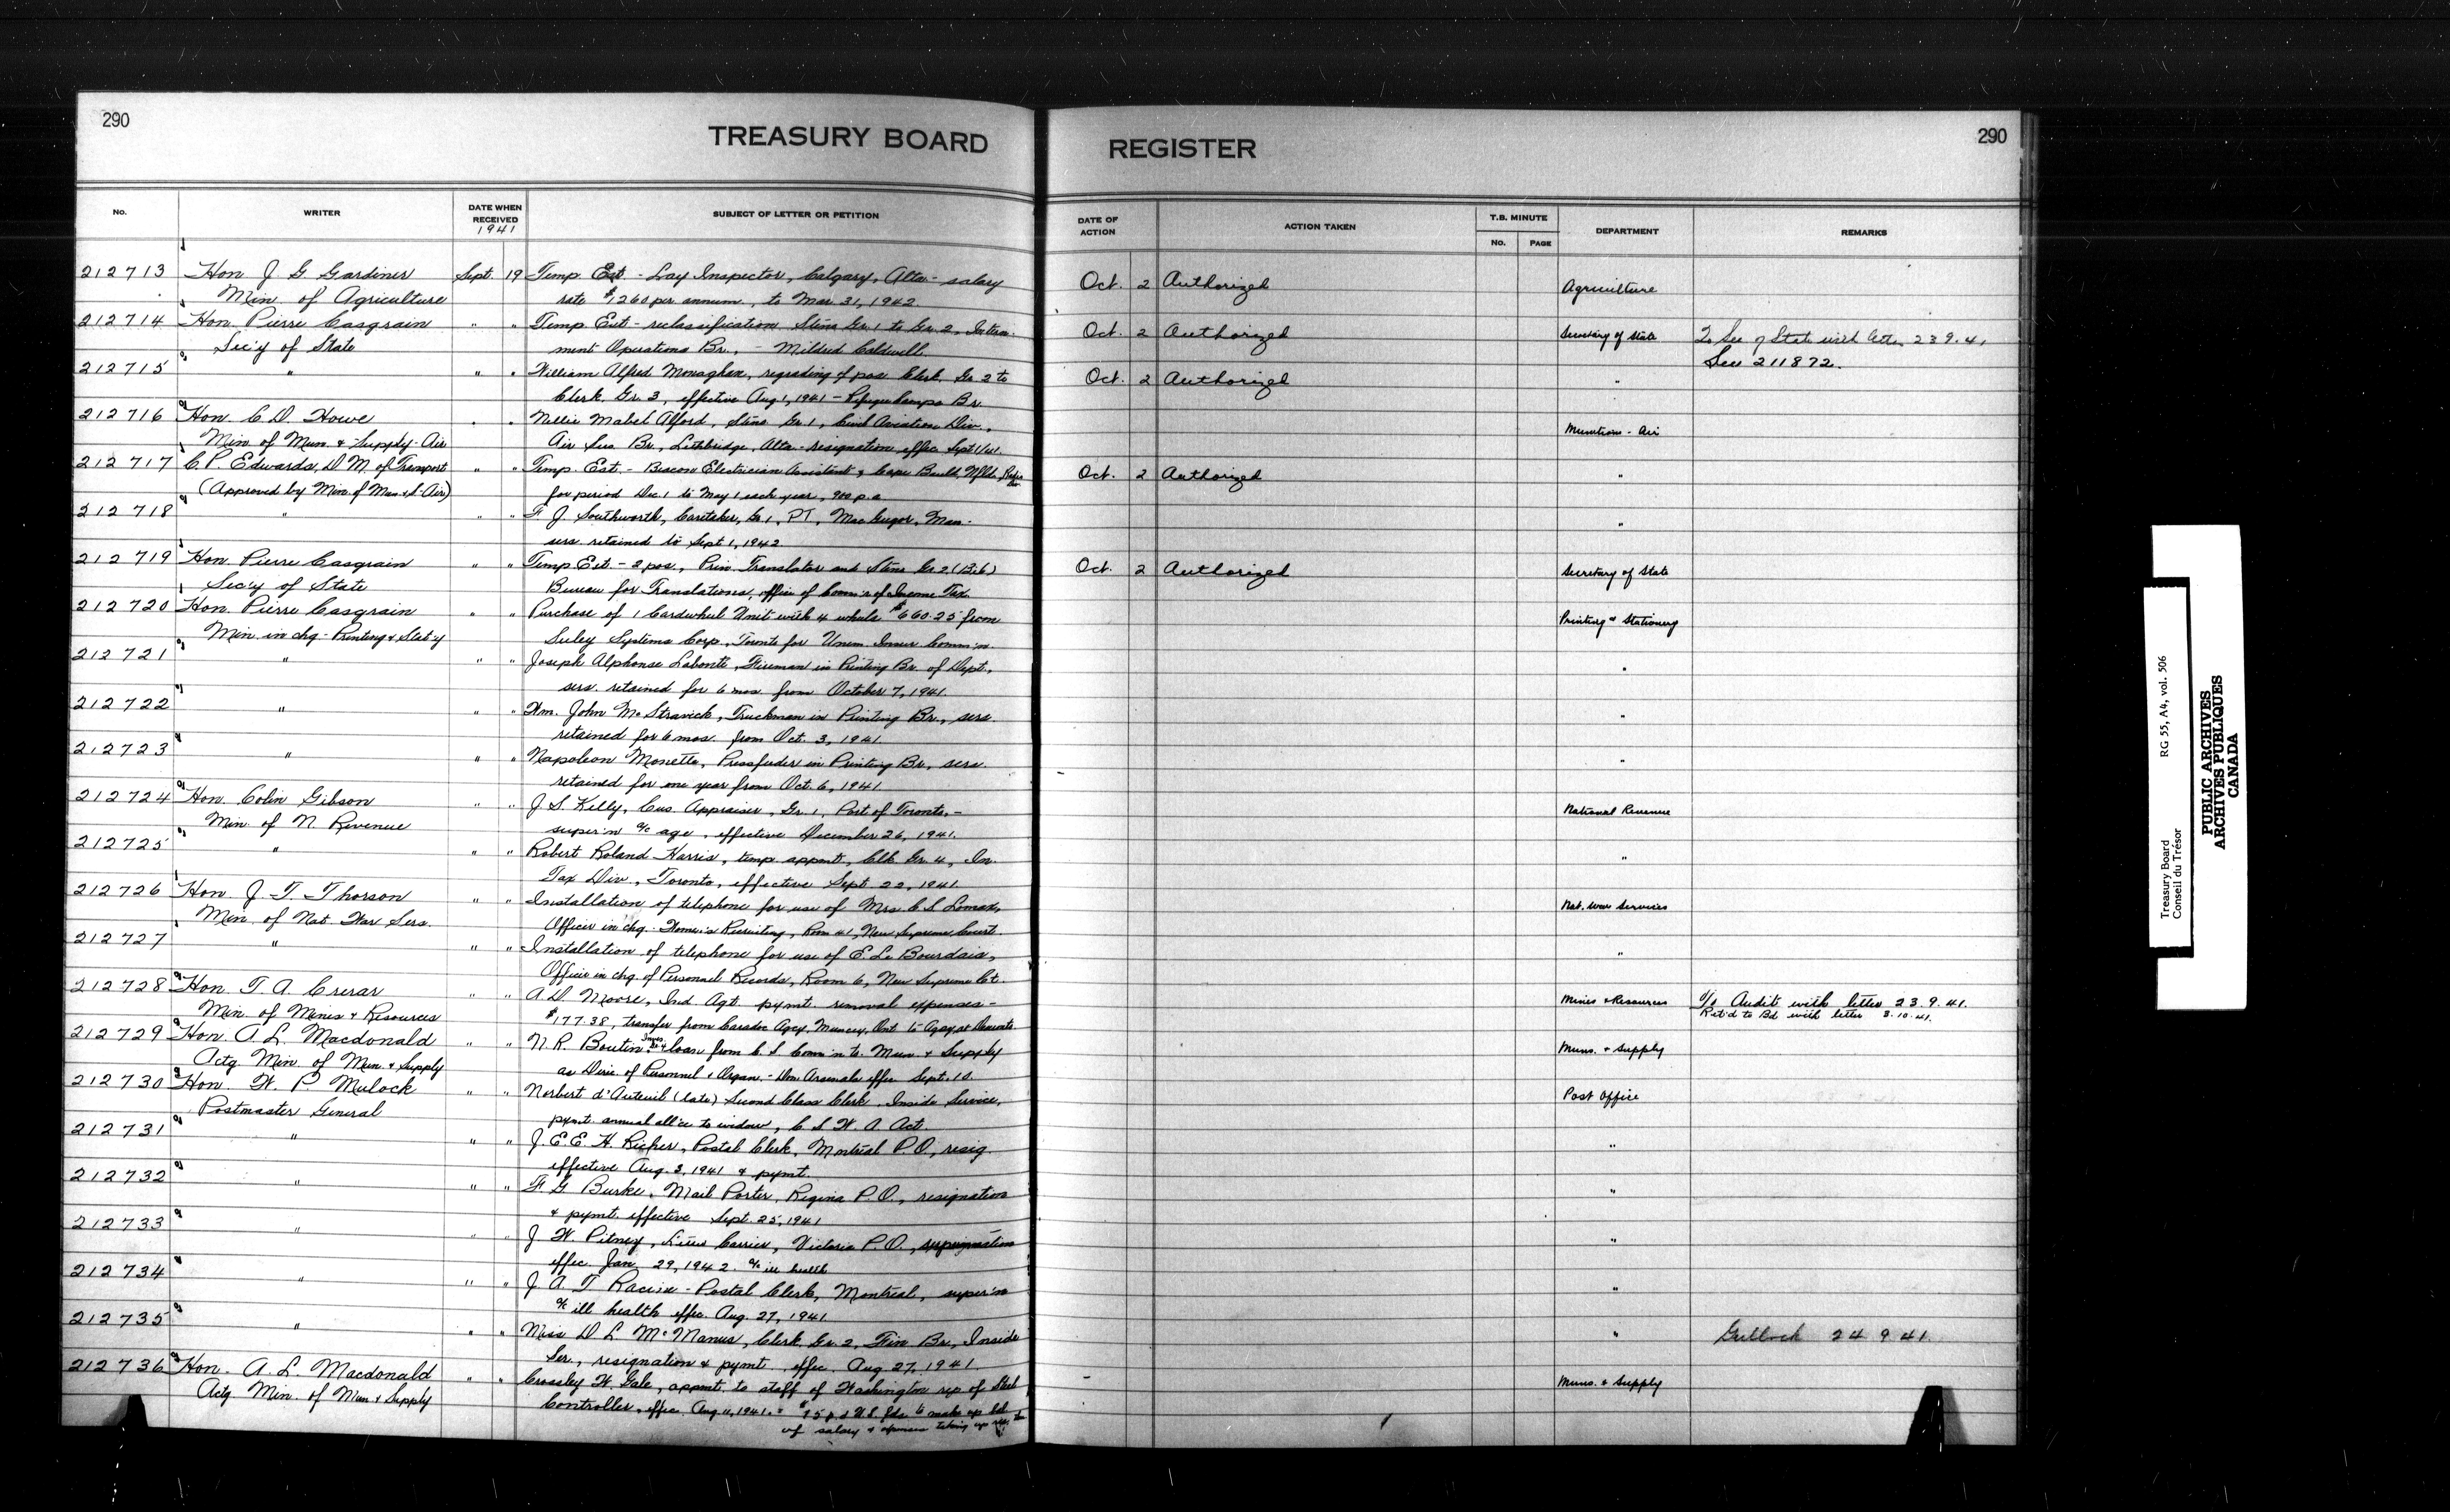 290
TREASURY BOARD
REGISTER
290
No.
WRITER
DATE WHEN RECEIVED
1941
SUBJECT OF LETTER OR PETITION
DATE OF ACTION
ACTION TAKEN
T.B. MINUTE
No.
PAGE
DEPARTMENT
REMARKS
212713 Hon J G Gardiner Sept. 19 Temp. Est - Lay Inspector, Calgary, Alta - salary Oct. 2 Authorized Agriculture
Min. of Agriculture rate $1260 per annum, to Mar. 31, 1942
212714 Hon. Pierre Casgrain " " Temp. Est - reclassification Steno Gr. 1 to Gr. 2, Intern- Oct. 2 Authorized Secretary of State To Sec of State with letter 23.9.41
Sec'y of State ment Operations Br., - Mildred Caldwell. See 211872.
212715 " " " William Alfred Monaghan, regrading of pos. Clerk, Gr 2 to Oct. 2 Authorized "
Clerk Gr. 3, effective Aug 1, 1941 - Br.
212716 Hon. C. D. Howe " " Nellie Mabel Alford, Steno Gr. 1, Civil Aviation Div., Munitions - Air
Min of Mun & Supply - Air Air Ser. Br., Lethbridge, Alta - resignation effec Sept 1/41
212717 C. P. Edwards, D. M. of Transport " " Temp. Est. - Beacon Electrician Assistant, Cape Bauld, Nfld, Radio Div Oct. 2 Authorized "
(Approved by Min. of Mun & S - Air) for period Dec. 1 to May 1 each year, 900 p.a
212718 " " " F J. Southworth, Caretaker, Gr 1, PT, MacGregor, Man. "
serv. retained to Sept 1, 1942
212719 Hon. Pierre Casgrain " " Temp Est - 2 pos., Prin. Translator and Steno Gr 2 (Bil.) Oct. 2 Authorized Secretary of State
Sec'y of State Bureau for Translations, office of Comm'r of Income Tax
212720 Hon. Pierre Casgrain " " Purchase of 1 Cardwheel Unit with 4 wheels $660.25 from Printing & Stationery
Min. in chg - Printing & Stat'y Systems Corp., Toronto for Unem. Insur Comm'n.
212721 " " " Joseph Alphonse Labonte, Fireman in Printing Br. of Dept., "
serv. retained for 6 mos. from October 7, 1941.
212722 " " " Wm. John McStravick, Truckman in Printing Br., serv. "
retained for 6 mos. from Oct. 3, 1941.
212723 " " " Napoleon Monette, Pressfeeder in Printing Br., serv. "
retained for one year from Oct. 6, 1941
212724 Hon. Colin Gibson " " J. S. Kelly, Cus. Appraiser, Gr. 1, Port of Toronto, - National Revenue
Min. of N. Revenue super'n a/c age, effective December 26, 1941.
212725 " " " Robert Roland Harris, temp appmt, Clk Gr. 4, In. "
Tax Div., Toronto, effective Sept. 22, 1941.
212726 Hon. J. T. Thorson " " Installation of telephone for use of Mrs C. S Lomax, Nat. War Services
Min. of Nat War Serv. Officer in chg - Women's Recruiting, Room 41, New Supreme Court
212727 " " " Installation of telephone for use of E. Le Bourdais, "
Officer in chg. of Personnel Records, Room 6, New Supreme Ct.
212728 Hon. T. A. Crerar " " A. D. Moore, Ind Agt. pymt. removal expenses - Mines & Resources To Audit with letter 23.9.41.
Min. of Mines & Resources $177.38, transfer from Caradoc Agcy, Muncey, Ont to Agcy at Ret'd to Bd with letter 3.10.41.
212729 Hon. A. L. Macdonald " " N. R. Boutin, Inves. Gr 4 loan from C. S. Comm'n to Mun. & Supply Muns. & Supply
Actg Min. of Mun. & Supply as Direc. of Personnel & Organ. - Dom. Arsenals effec Sept. 10.
212730 Hon. W. P. Mulock " " Norbert d'Auteuil (late) Second Class Clerk, Inside Service, Post Office
Postmaster General pymt. annual all'ce to widow, C. S. W. A. Act.
212731 " " " J. E. E. H. Richer, Postal Clerk, Montreal P.O., resig. "
effective Aug. 3, 1941 & pymt.
212732 " " " F. G Burke, Mail Porter, Regina P.O., resignation "
& pymt. effective Sept. 25, 1941
212733 " " " J W. Pitney, Letter Carrier, Victoria P.O., "
effec. Jan 29, 1942. a/c ill health
212734 " " " J A. T Racine - Postal Clerk, Montreal, super'n "
a/c ill health effec. Aug. 27, 1941
212735 " " " Miss D L McManus, Clerk Gr. 2, Fin Br., Inside " Gullock 24 9 41
Ser., resignation & pymt. effec. Aug. 27, 1941.
212736 Hon. A. L. Macdonald " " Crossley W. Gale, appmt. to staff of Washington rep of Steel Muns. & Supply
Actg. Min. of Mun & Supply Controller, effec. Aug. 11, 1941. - $15 p.d U.S. fds. to make up bal
of salary & expenses
Treasury Board RG 55, A4, vol. 506
Conseil du Trésor
PUBLIC ARCHIVES
ARCHIVES PUBLIQUES
CANADA